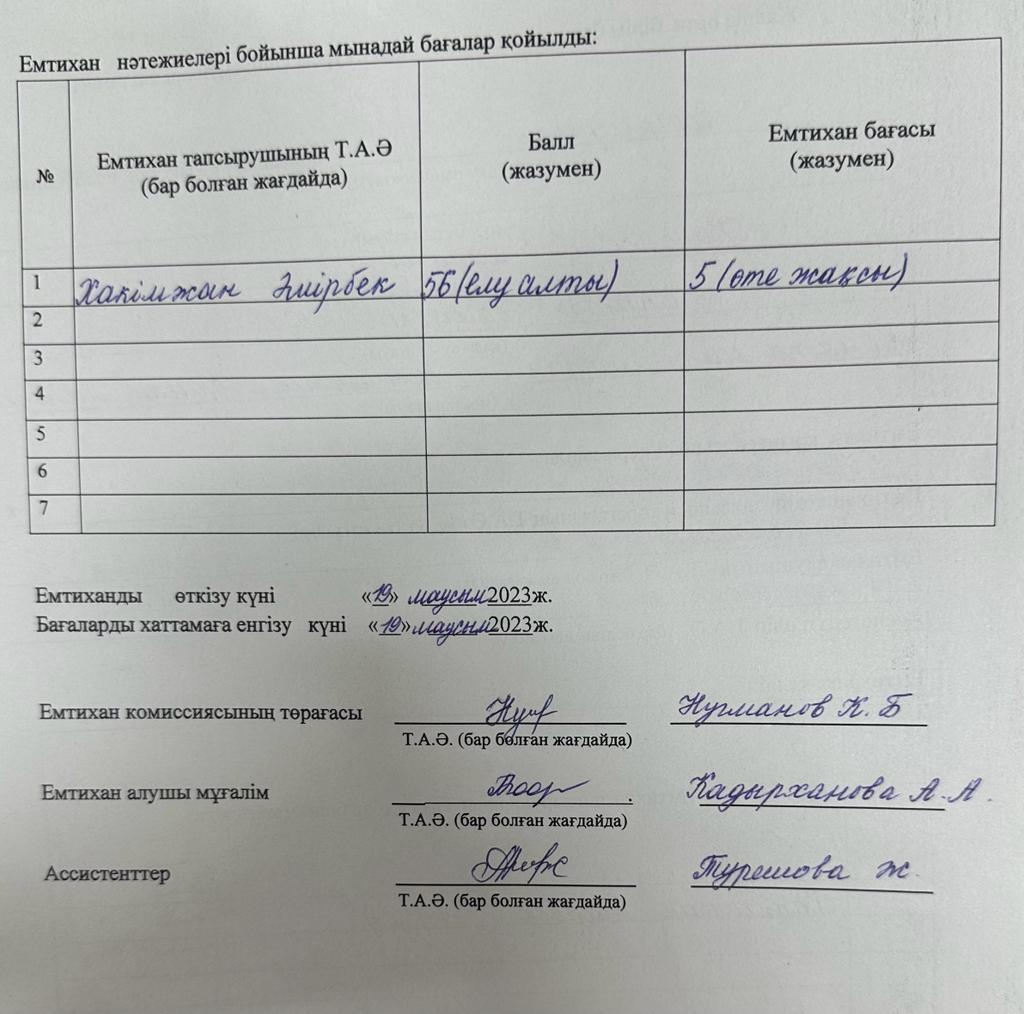 Емтихан нәтежиелері бойынша мынадай бағалар қойылды:
№ Емтихан тапсырушының Т.А.Ә (бар болған жағдайда) Балл (жазумен) Емтихан бағасы (жазумен)
1 Хакімжан Әмірбек 56 (елу алты) 5 (өте жақсы)
2
3
4
5
6
7
Емтиханды өткізу күні «19» маусым 2023ж.
Бағаларды хаттамаға енгізу күні «19» маусым 2023ж.
Емтихан комиссиясының төрағасы Нугманов К. Б
Т.А.Ә. (бар болған жағдайда)
Емтихан алушы мұғалім Кадырханова А.А.
Т.А.Ә. (бар болған жағдайда)
Ассистенттер Турешова Ж.
Т.А.Ә. (бар болған жағдайда)